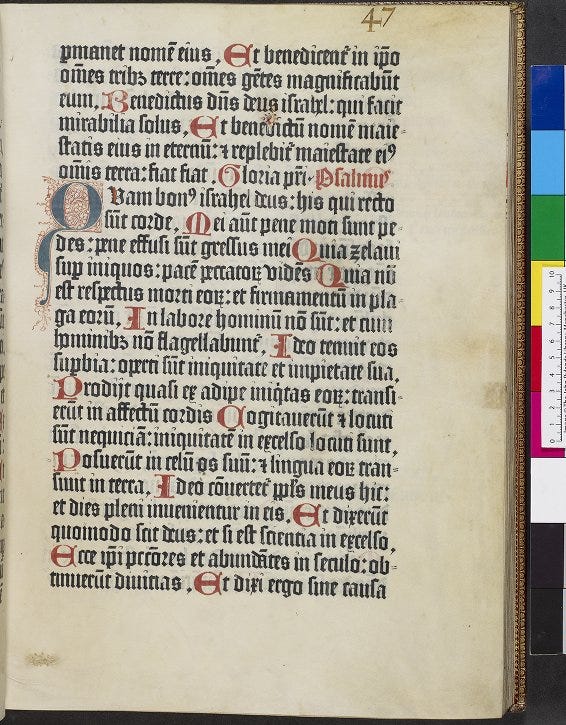 47
pmanet nomē eius. Et benedicent᷑ in ip̄o
om̄es tribꝫ terre: om̄es gētes magnificabūt
eum. Benedictus dn̄s deus israhel: qui facit
mirabilia solus. Et benedictū nomē maie-
statis eius in eternū: ⁊ replebit᷑ maiestate eiꝰ
om̄is terra: fiat fiat. Gloria pr̄i. Psalmꝰ
QVam bonꝰ israhel deus: his qui recto
sūt corde. Mei aūt pene moti sunt pe-
des: pene effusi sūt gressus mei Quia zelaui
suꝑ iniquos: pacē peccatoꝝ vidēs Quia nō
est respectus morti eoꝝ: et firmamentū in pla-
ga eorū. In labore hominū nō sūt: et cum
hominibꝫ nō flagellabunt᷑. Ideo tenuit eos
suꝑbia: operti sūt iniquitate et impietate sua.
Prodijt quasi ex adipe iniq̄tas eoꝝ: transi-
erūt in affectū cordis Cogitauerūt ⁊ locuti
sūt nequiciā: iniquitatē in excelso locuti sunt.
Posuerūt in celū os suū: ⁊ lingua eoꝝ tran-
siuit in terra. Ideo cōuertet᷑ ppl̄s meus hic:
et dies pleni inuenientur in eis. Et dixerūt
quomodo scit deus: et si est scientia in excelso.
Ecce ip̄i pctōres et abundātes in seculo: ob-
tinuerūt diuitias. Et dixi ergo sine causa